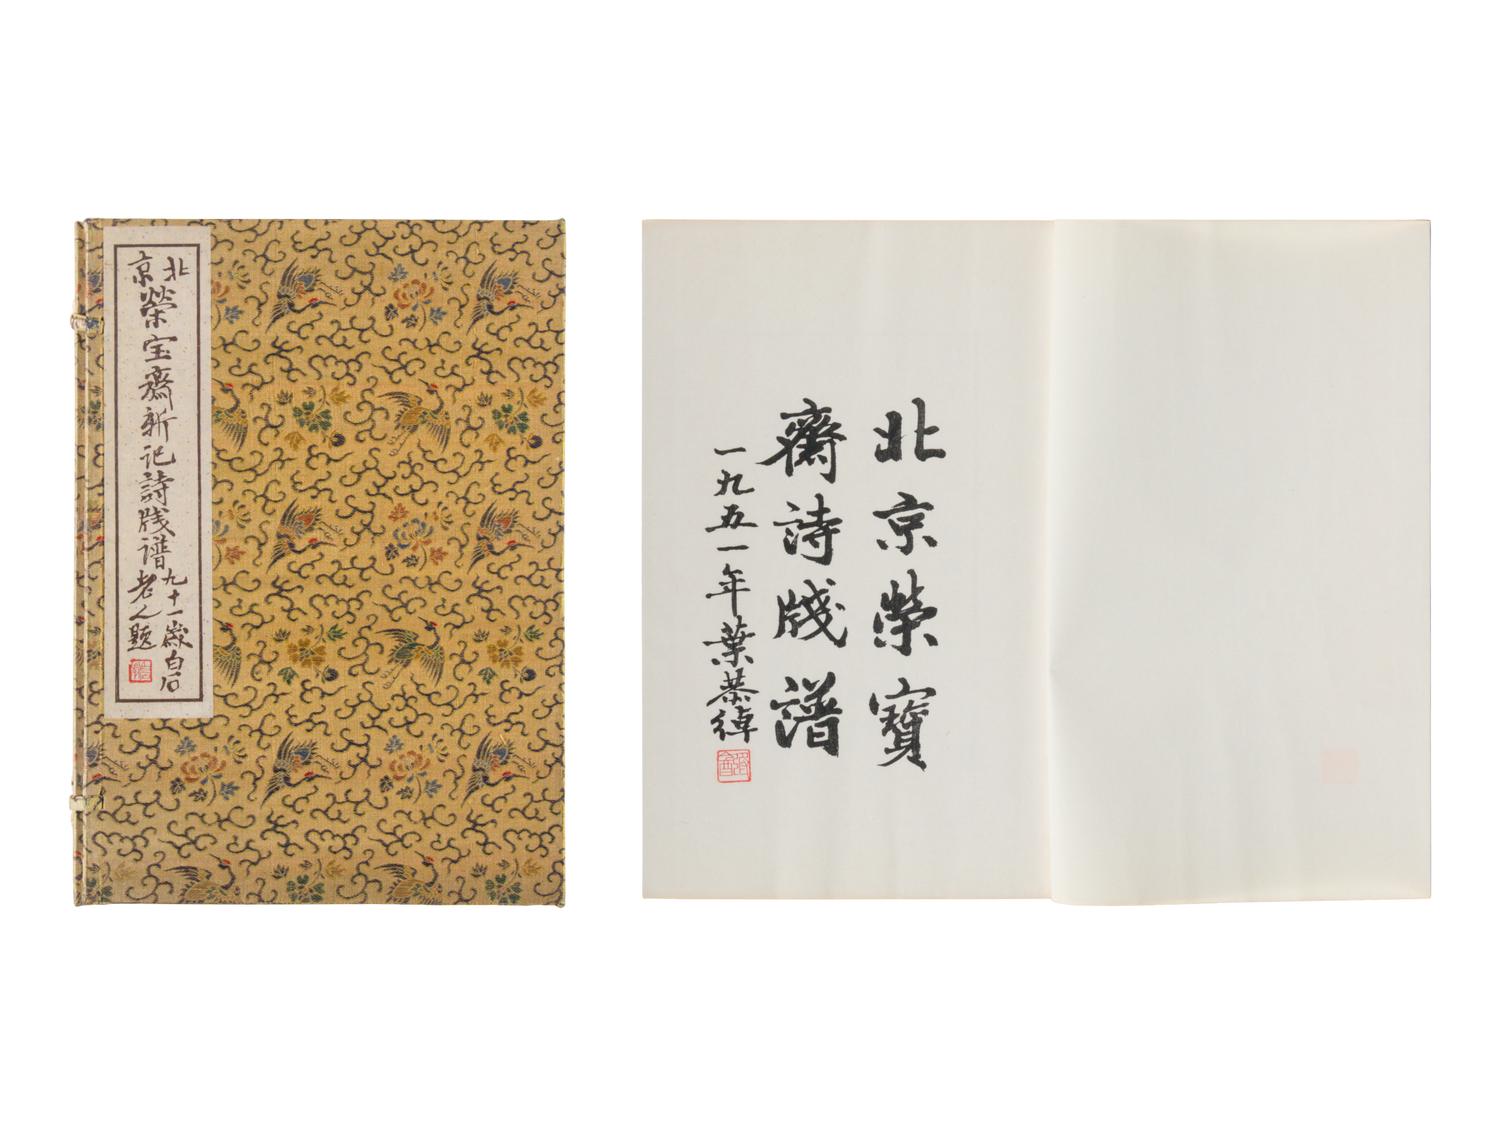 北京
榮宝齋新记詩牋谱
九十一歲白石
老人題
北京榮寶
齋詩牋譜
一九五一年葉恭綽